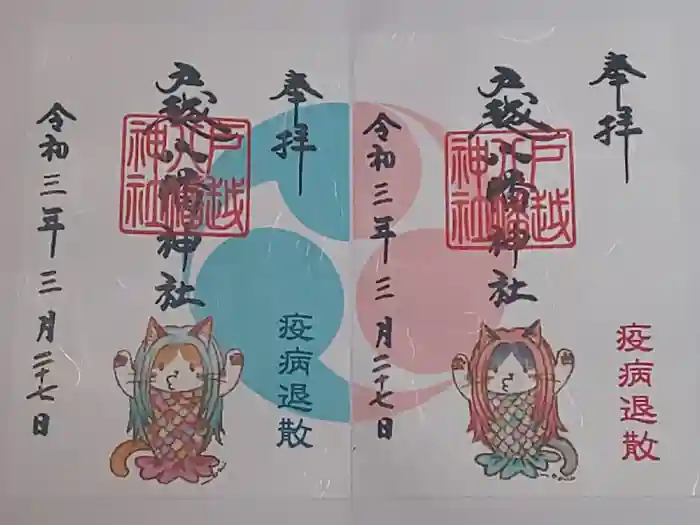 奉拝
戸越八幡神社
戸越八幡神社
令和三年三月二十七日
疫病退散
奉拝
戸越八幡神社
戸越八幡神社
令和三年三月二十七日
疫病退散